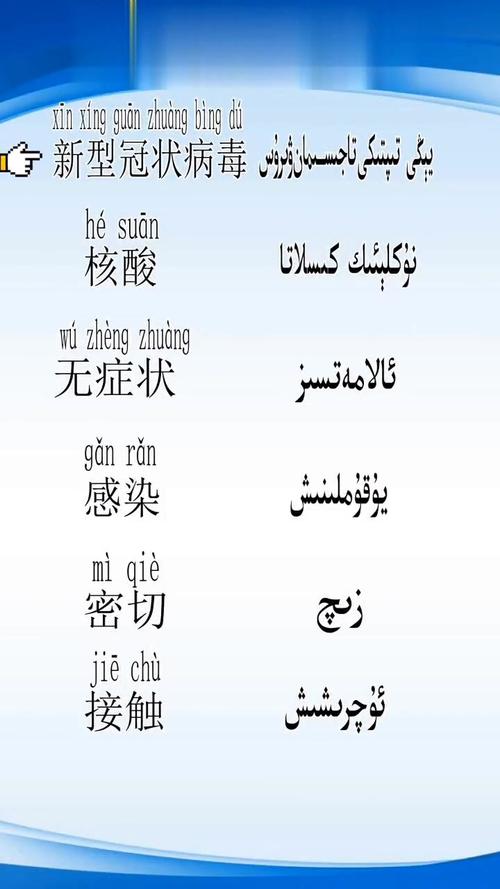 xīn xíng guān zhuàng bìng dú
新型冠状病毒 يېڭى تىپتىكى تاجسىمان ۋىرۇس
hé suān
核酸 نۇكلېئىك كىسلاتا
wú zhèng zhuàng
无症状 ئالامەتسىز
gǎn rǎn
感染 يۇقۇملىنىش
mì qiè
密切 زىچ
jiē chù
接触 ئۇچرىشىش